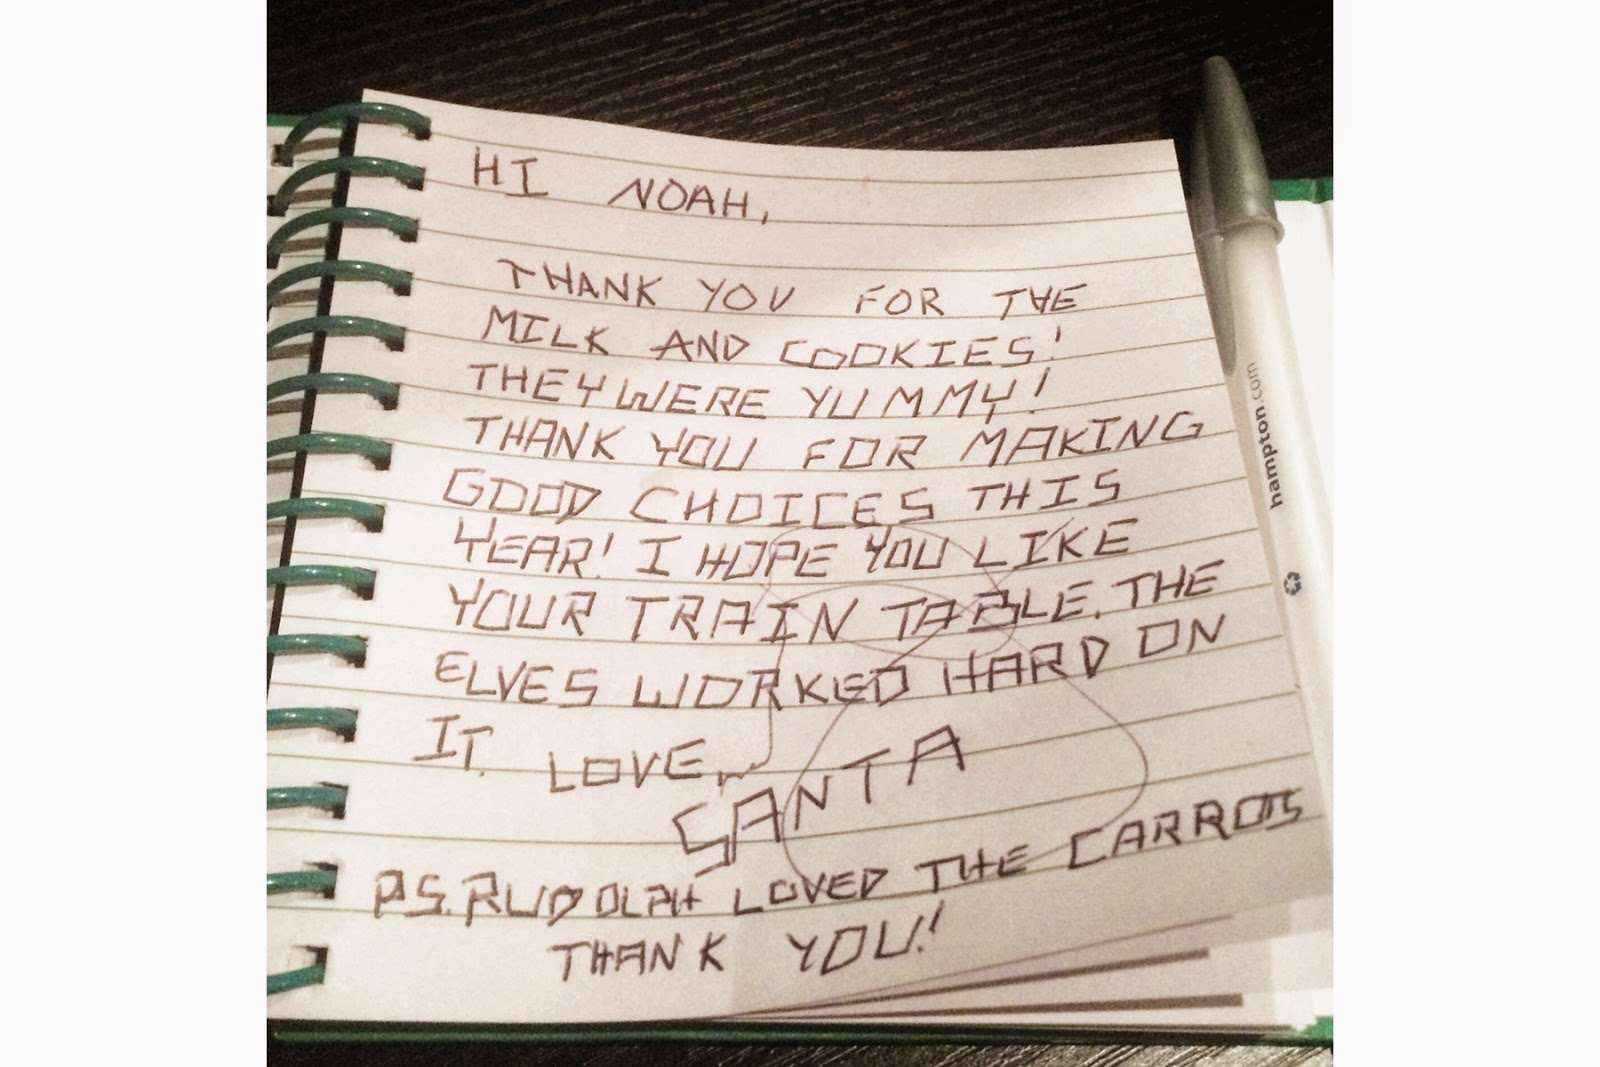 HI NOAH,
THANK YOU FOR THE
MILK AND COOKIES!
THEY WERE YUMMY!
THANK YOU FOR MAKING
GOOD CHOICES THIS
YEAR! I HOPE YOU LIKE
YOUR TRAIN TABLE. THE
ELVES WORKED HARD ON
IT. LOVE,
SANTA
P.S. RUDOLPH LOVED THE CARROTS
THANK YOU!
hampton.com